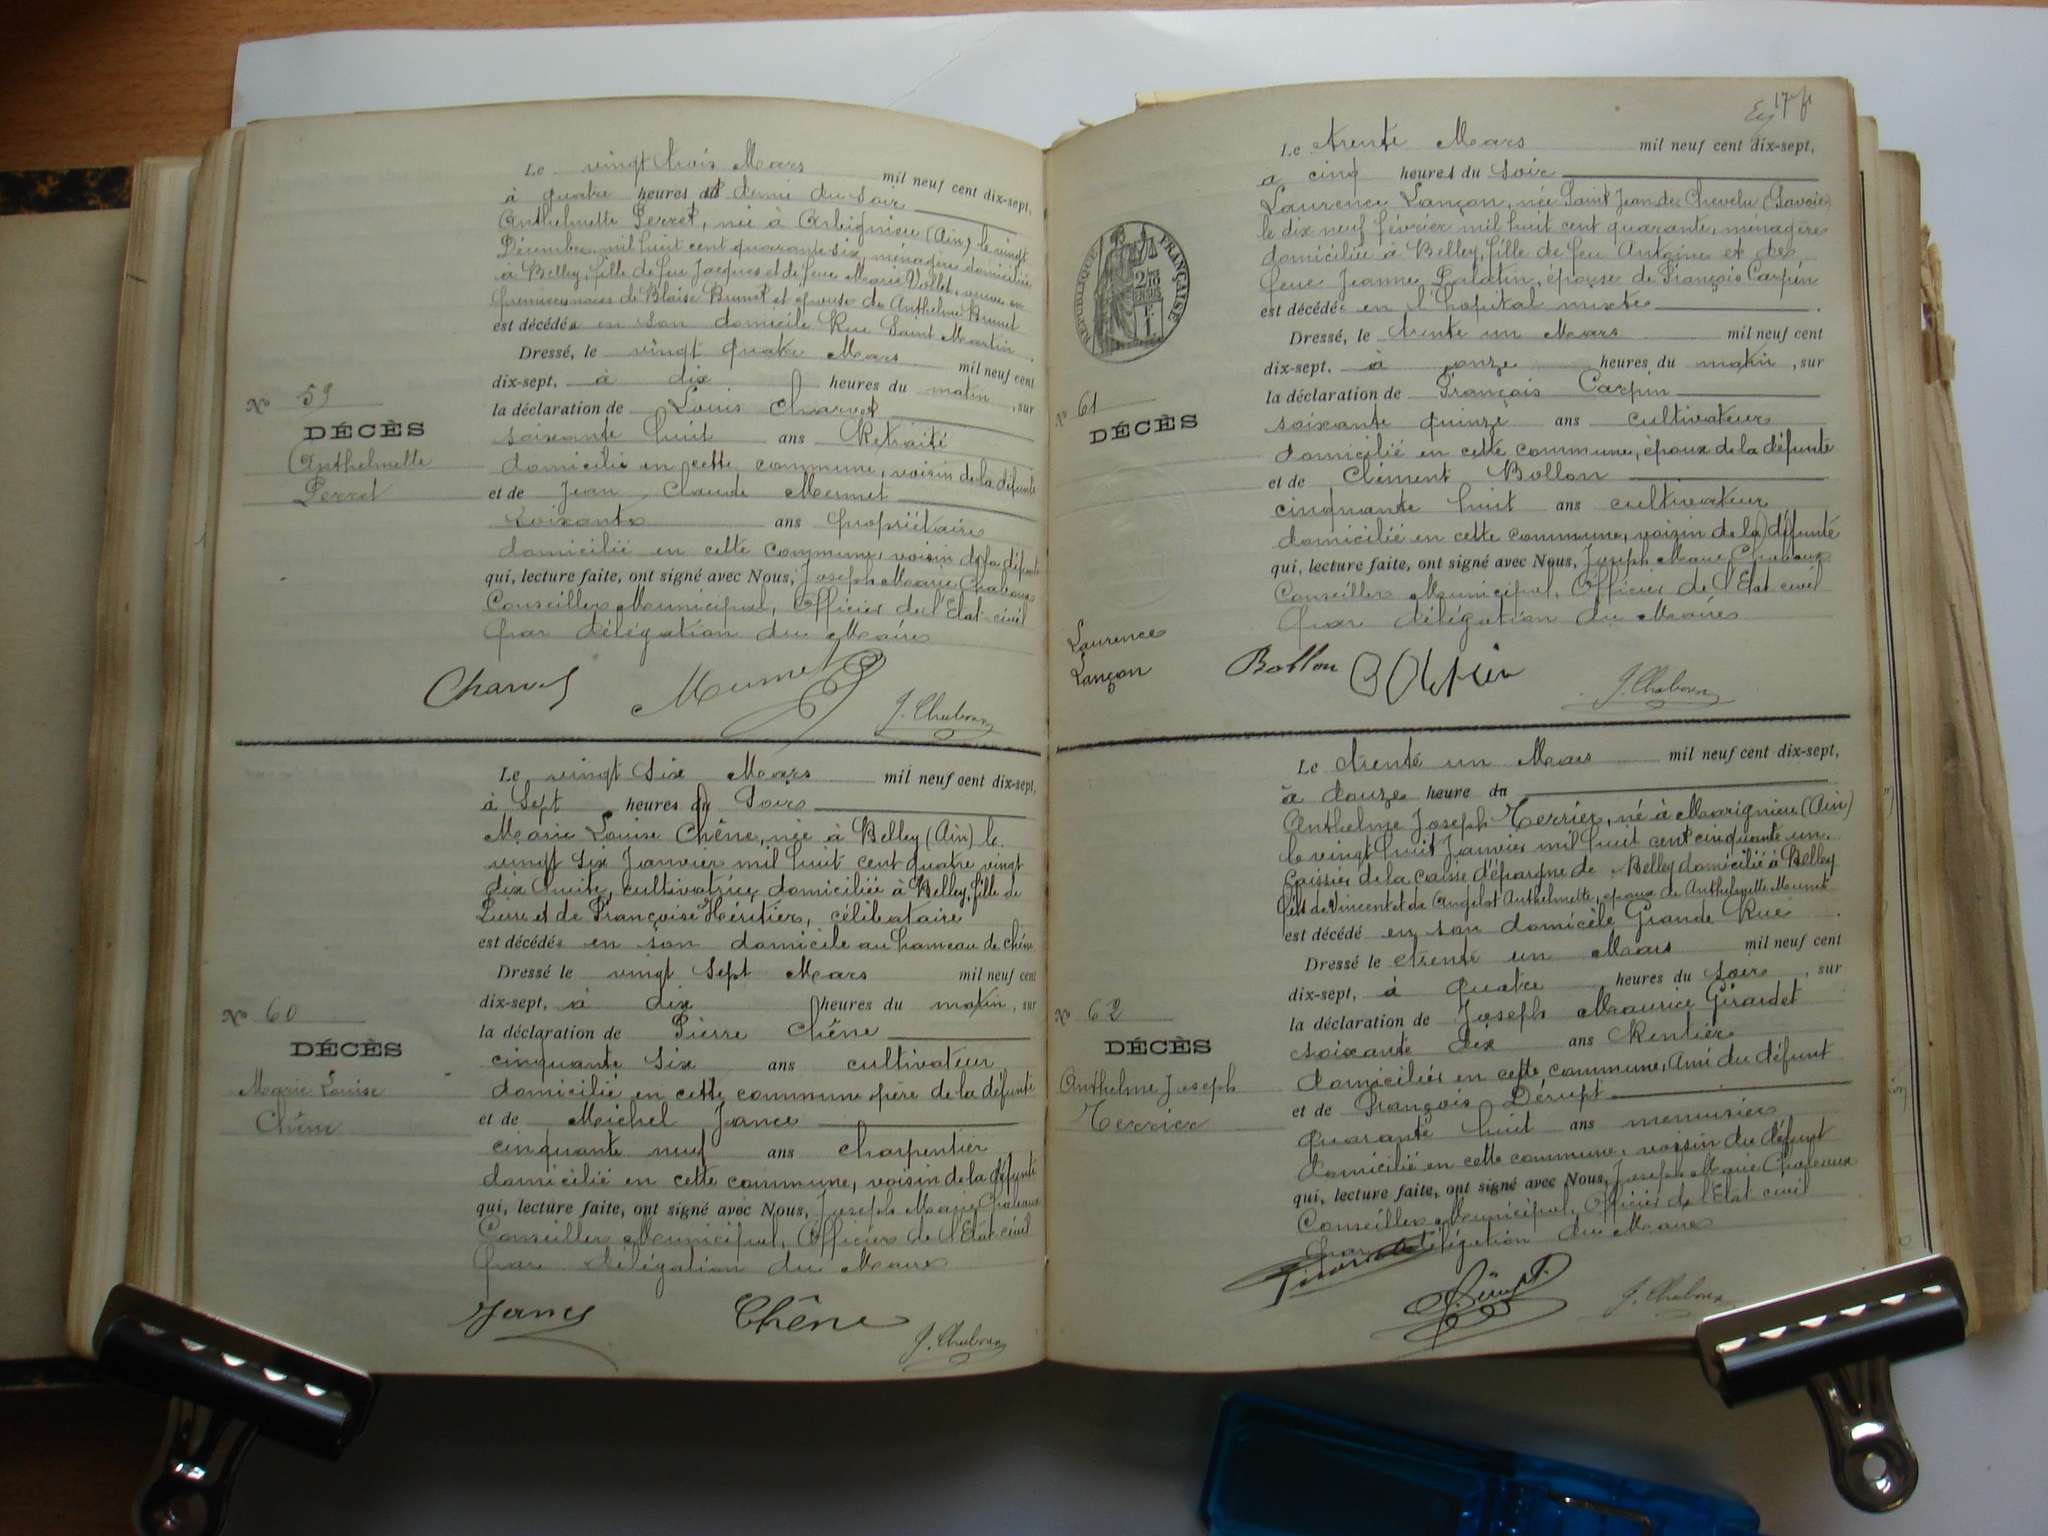 Le vingt trois Mars mil neuf cent dix-sept,
à quatre heures et demi du soir
Anthelmette Perret, née à Arbignieu (Ain) le vingt
Décembre mil huit cent quarante six, ménagère domiciliée
à Belley, fille de feu Jacques et de feue Marie Vollet, veuve en
premières noces de Blaise Brunet et épouse de Anthelme Brunet
est décédée en son domicile Rue Saint Martin.
Dressé, le vingt quatre Mars mil neuf cent
dix-sept, à dix heures du matin, sur
la déclaration de Louis Charvet
soixante huit ans Retraité
domicilié en cette commune, voisin de la défunte
et de Jean Claude Mermet
soixante ans propriétaire
domicilié en cette commune, voisin de la défunte
qui, lecture faite, ont signé avec Nous, Joseph Marie Chaboux
Conseiller Municipal, Officier de l'Etat-civil
par délégation du Maire
Nº 59
DÉCÈS
Anthelmette
Perret
Charvet Mermet J. Chaboux
Le vingt six Mars mil neuf cent dix-sept,
à Sept heures du Soir
Marie Louise Chêne, née à Belley (Ain) le
vingt six Janvier mil huit cent quatre vingt
dix huit, cultivatrice, domiciliée à Belley, fille de
Pierre et de Françoise Héritier, célibataire
est décédée en son domicile au hameau de Chêne
Dressé le vingt sept Mars mil neuf cent
dix-sept, à dix heures du matin, sur
la déclaration de Pierre Chêne
cinquante six ans cultivateur
domicilié en cette commune père de la défunte
et de Michel Jance
cinquante neuf ans charpentier
domicilié en cette commune, voisin de la défunte
qui, lecture faite, ont signé avec Nous, Joseph Marie Chaboux
Conseiller Municipal, Officier de l'Etat-civil
par délégation du Maire
Nº 60
DÉCÈS
Marie Louise
Chêne
Chêne J. Chaboux
17
Le trente Mars mil neuf cent dix-sept,
à cinq heures du soir
Laurence Lançon, née Saint Jean de Chevelu (Savoie)
le dix neuf février mil huit cent quarante, ménagère
domiciliée à Belley, fille de feu Antoine et de
feue Jeanne Palatin, épouse de François Carpin
est décédée en l'hopital mixte.
Dressé, le trente un Mars mil neuf cent
dix-sept, à onze heures du matin, sur
la déclaration de François Carpin
soixante quinze ans cultivateur
domicilié en cette commune, époux de la défunte
et de Clément Bollon
cinquante huit ans cultivateur
domicilié en cette commune, voisin de la défunte
qui, lecture faite, ont signé avec Nous, Joseph Marie Chaboux
Conseiller Municipal, Officier de l'Etat civil
par délégation du Maire
RÉPUBLIQUE FRANÇAISE
Nº 61
DÉCÈS
Laurence
Lançon
Bollon Carpin J. Chaboux
Le trente un Mars mil neuf cent dix-sept,
à douze heure du
Anthelme Joseph Terrier, né à Marignieu (Ain)
le vingt huit Janvier mil huit cent cinquante un.
caissier de la caisse d'épargne de Belley domicilié à Belley
fils de Vincent et de Angelot Anthelmette, époux de Anthelmette Mermet
est décédé en son domicile Grande Rue.
Dressé le trente un Mars mil neuf cent
dix-sept, à quatre heures du soir, sur
la déclaration de Joseph Maurice Girardet
soixante dix ans Rentier
domicilié en cette commune, ami du défunt
et de François Dérupt
quarante huit ans menuisier
domicilié en cette commune, voisin du défunt
qui, lecture faite, ont signé avec Nous, Joseph Marie Chaboux
Conseiller Municipal, Officier de l'Etat civil
par délégation du Maire
Nº 62
DÉCÈS
Anthelme Joseph
Terrier
J. Chaboux